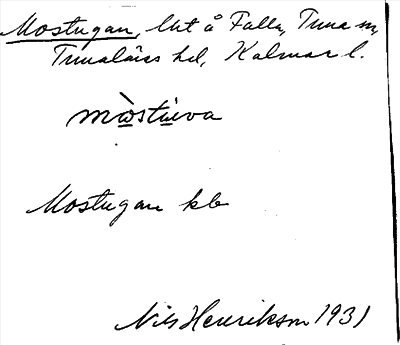 Mostugan, lht å Falla, Tuna sn,
Tunaläns hd, Kalmar l.
mòstùva
Mostugan kb
Nils Henrikson 1931